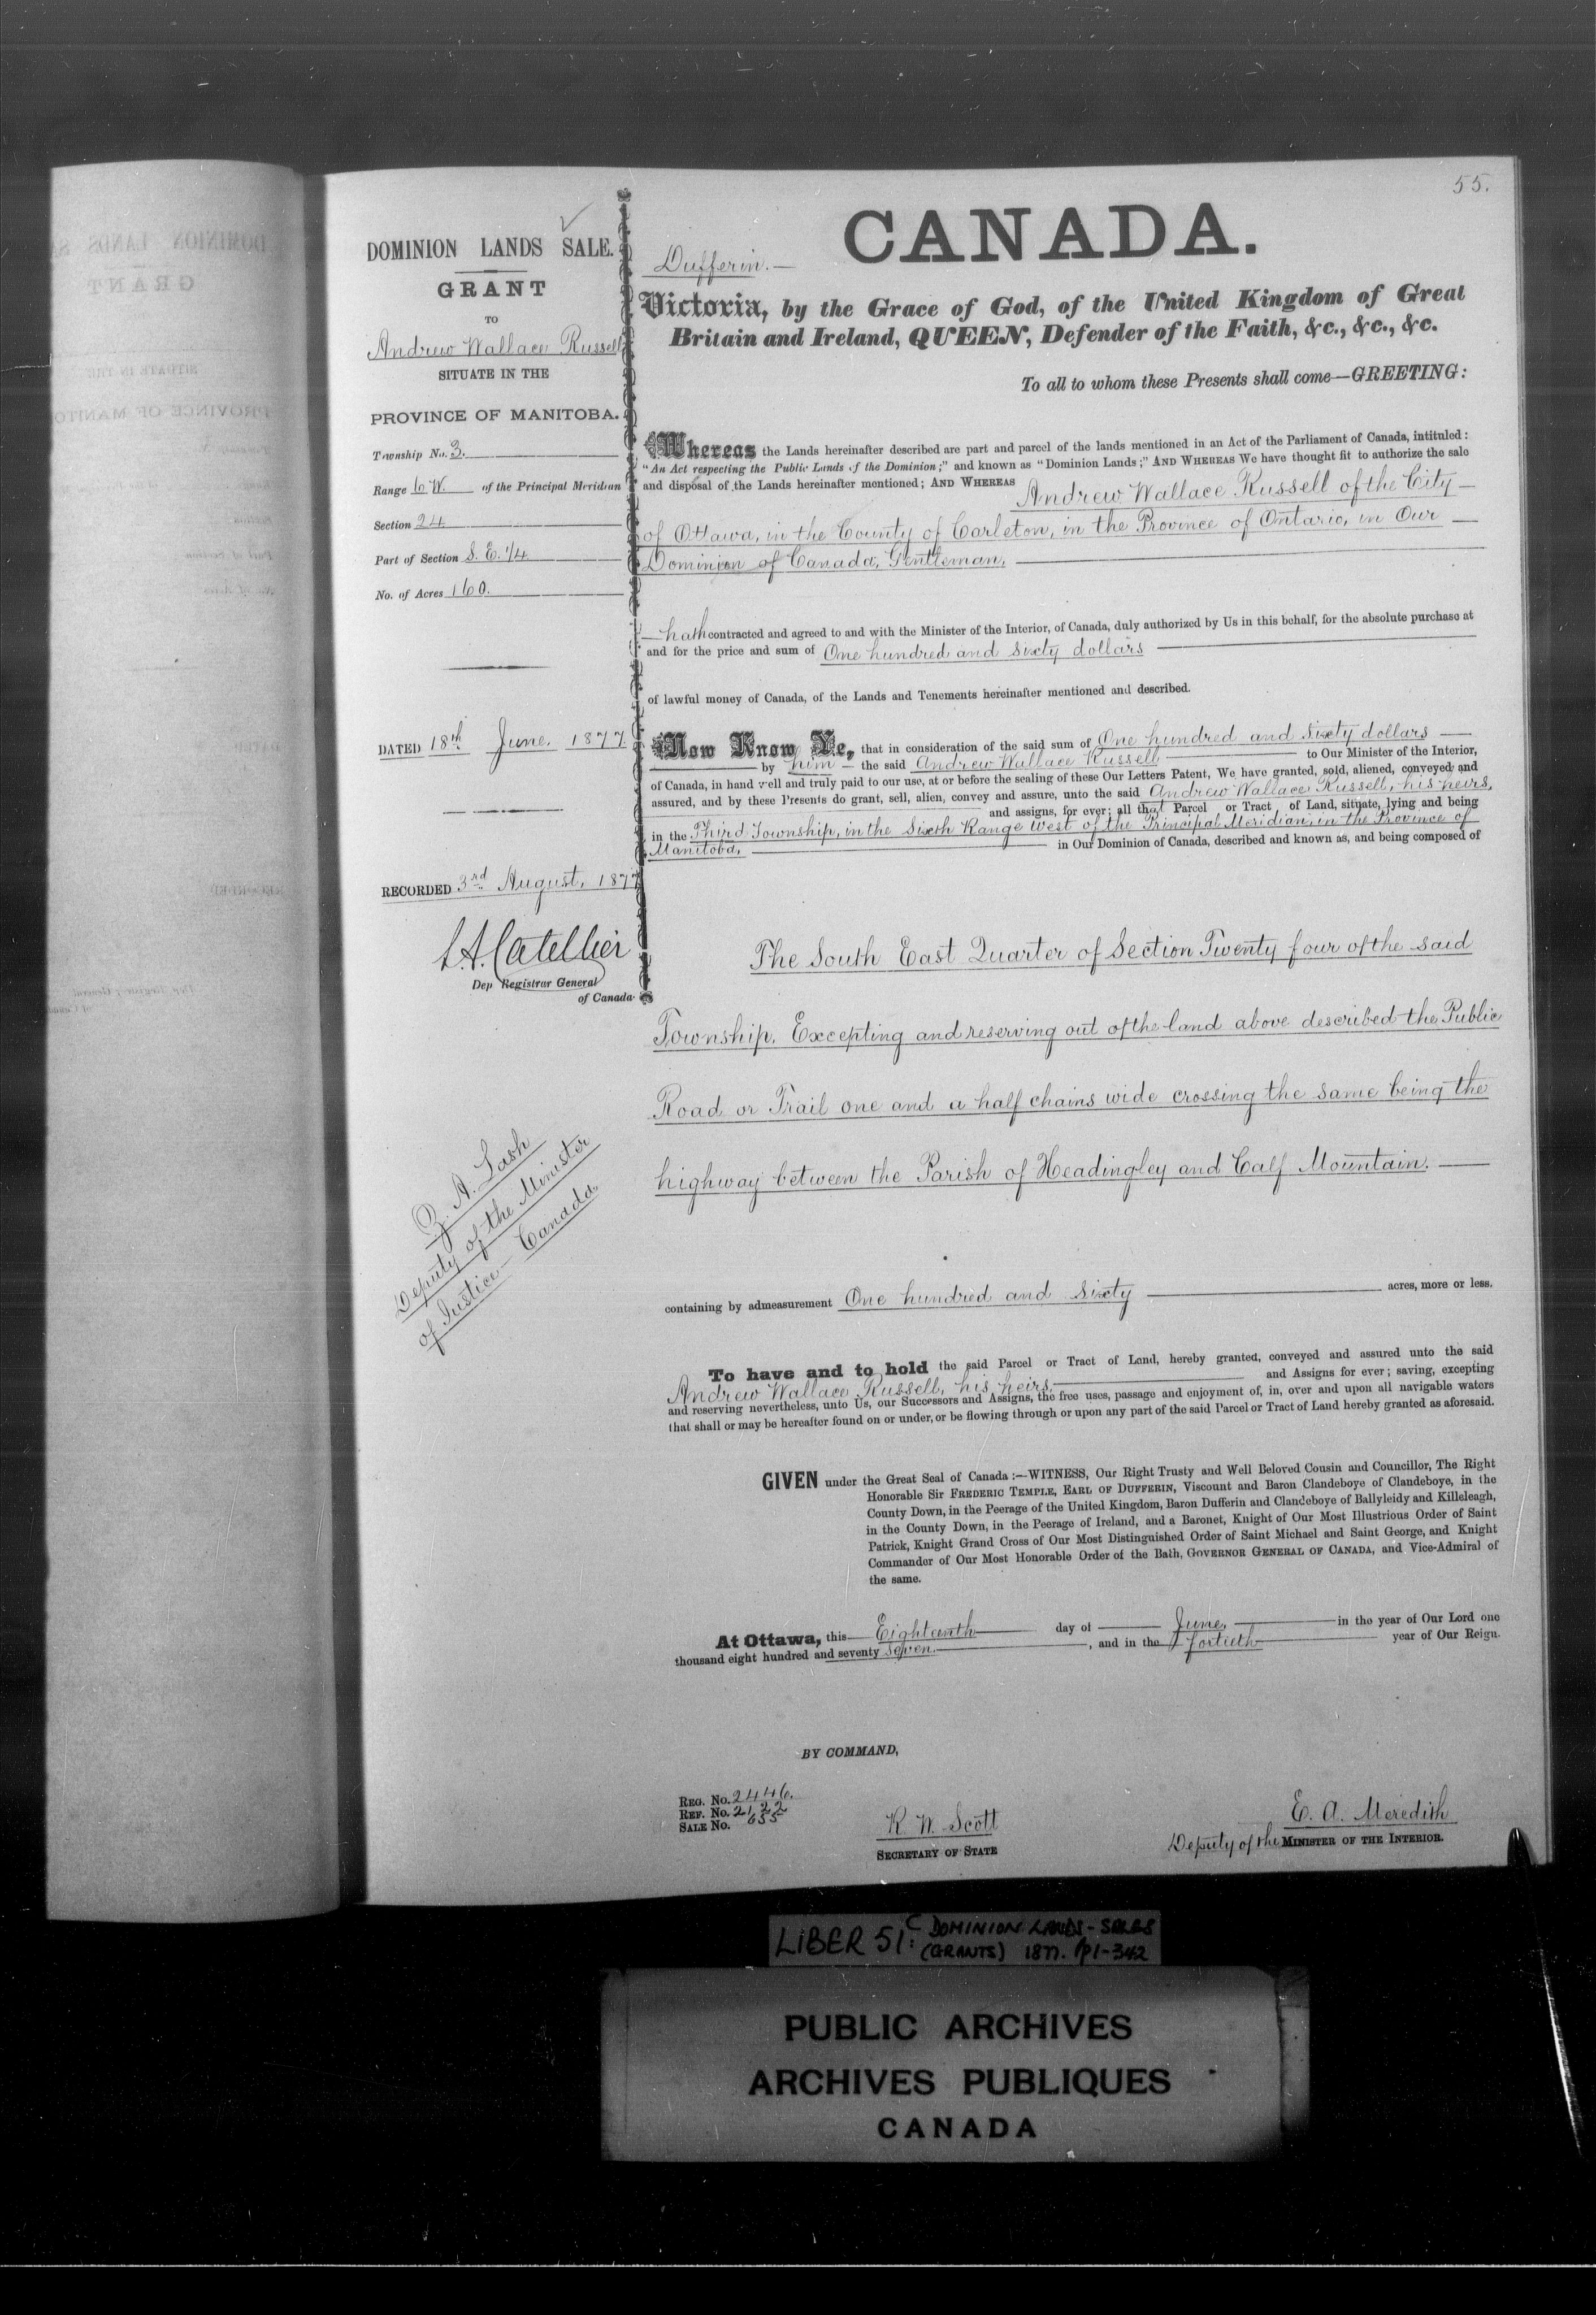 55.
DOMINION LANDS SALE.
GRANT
TO
Andrew Wallace Russell
SITUATE IN THE
PROVINCE OF MANITOBA.
Township No. 3.
Range 6 W. of the Principal Meridian
Section 24
Part of Section S. E. 1/4
No. of Acres 160.
DATED 18th June, 1877
RECORDED 3rd August, 1877
L.A. Catellier
Dep Registrar General
of Canada
Z. A. Lash
Deputy of the Minister
of Justice - Canada
CANADA.
Dufferin.
Victoria, by the Grace of God, of the United Kingdom of Great
Britain and Ireland, QUEEN, Defender of the Faith, &c., &c., &c.
To all to whom these Presents shall come—GREETING:
Whereas the Lands hereinafter described are part and parcel of the lands mentioned in an Act of the Parliament of Canada, intituled:
"An Act respecting the Public Lands of the Dominion;" and known as "Dominion Lands;" AND WHEREAS We have thought fit to authorize the sale
and disposal of the Lands hereinafter mentioned; AND WHEREAS Andrew Wallace Russell of the City
of Ottawa, in the County of Carleton, in the Province of Ontario, in Our
Dominion of Canada, Gentleman,
hath contracted and agreed to and with the Minister of the Interior, of Canada, duly authorized by Us in this behalf, for the absolute purchase at
and for the price and sum of One hundred and Sixty dollars
of lawful money of Canada, of the Lands and Tenements hereinafter mentioned and described.
Now Know Ye, that in consideration of the said sum of One hundred and Sixty dollars
by him the said Andrew Wallace Russell to Our Minister of the Interior,
of Canada, in hand well and truly paid to our use, at or before the sealing of these Our Letters Patent, We have granted, sold, aliened, conveyed and
assured, and by these Presents do grant, sell, alien, convey and assure, unto the said Andrew Wallace Russell, his heirs,
and assigns, for ever; all that Parcel or Tract of Land, situate, lying and being
in the Third Township, in the Sixth Range West of the Principal Meridian, in the Province of
Manitoba, in Our Dominion of Canada, described and known as, and being composed of
The South East Quarter of Section Twenty four of the said
Township. Excepting and reserving out of the land above described the Public
Road or Trail one and a half chains wide crossing the same being the
highway between the Parish of Headingley and Calf Mountain.
containing by admeasurement One hundred and sixty acres, more or less.
To have and to hold the said Parcel or Tract of Land, hereby granted, conveyed and assured unto the said
Andrew Wallace Russell, his heirs, and Assigns for ever; saving, excepting
and reserving nevertheless, unto Us, our Successors and Assigns, the free uses, passage and enjoyment of, in, over and upon all navigable waters
that shall or may be hereafter found on or under, or be flowing through or upon any part of the said Parcel or Tract of Land hereby granted as aforesaid.
GIVEN under the Great Seal of Canada:—WITNESS, Our Right Trusty and Well Beloved Cousin and Councillor, The Right
Honorable Sir FREDERIC TEMPLE, EARL OF DUFFERIN, Viscount and Baron Clandeboye of Clandeboye, in the
County Down, in the Peerage of the United Kingdom, Baron Dufferin and Clandeboye of Ballyleidy and Killeleagh,
in the County Down, in the Peerage of Ireland, and a Baronet, Knight of Our Most Illustrious Order of Saint
Patrick, Knight Grand Cross of Our Most Distinguished Order of Saint Michael and Saint George, and Knight
Commander of Our Most Honorable Order of the Bath, GOVERNOR GENERAL OF CANADA, and Vice-Admiral of
the same.
At Ottawa, this Eighteenth day of June, in the year of Our Lord one
thousand eight hundred and seventy seven, and in the fortieth year of Our Reign.
BY COMMAND,
REG. No. 2446.
REF. No. 2122
SALE No. 655
R. W. Scott
SECRETARY OF STATE
E. A. Meredith
Deputy of the MINISTER OF THE INTERIOR.
LIBER 51C: DOMINION LANDS - SALES
(GRANTS) 1877. pp1-342
PUBLIC ARCHIVES
ARCHIVES PUBLIQUES
CANADA